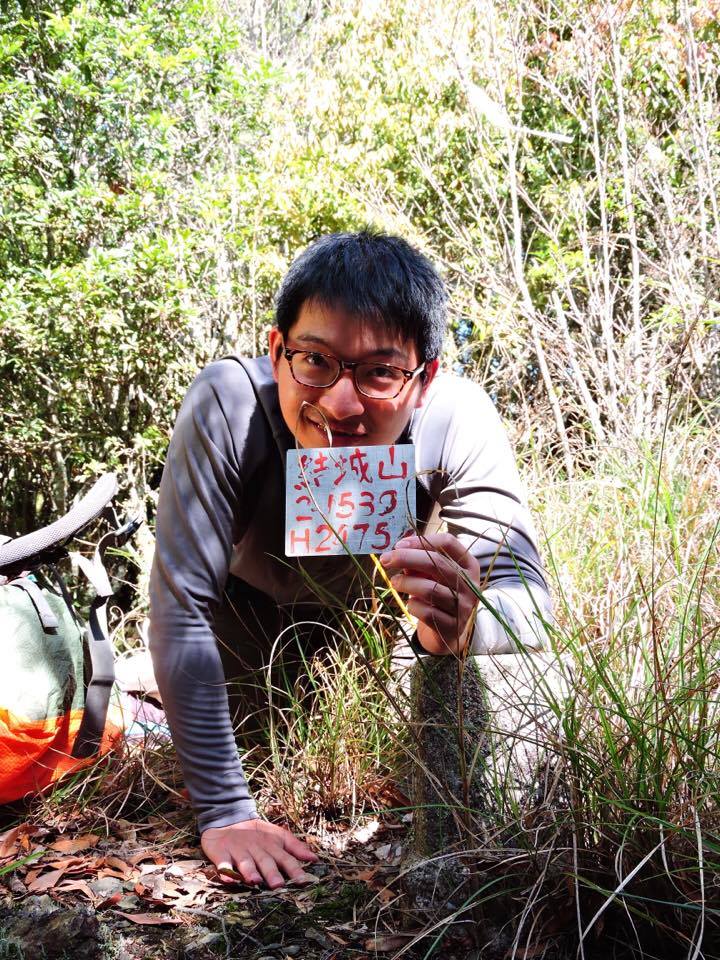 結城山
三.1539
H2475